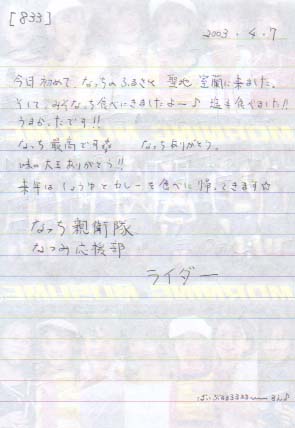 [833]
2003.4.7
今日初めて、なっちのふるさと 聖地 室蘭に来ました。
そして、みそなっち食べにきましたよ〜♪ 塩も食べました!!
うまかったです!!
なっち最高です なっちありがとう。
味の大王ありがとう!!
来年はしょうゆとカレーを食べに帰ってきます☆
なっち親衛隊
なつみ応援部
ライダー